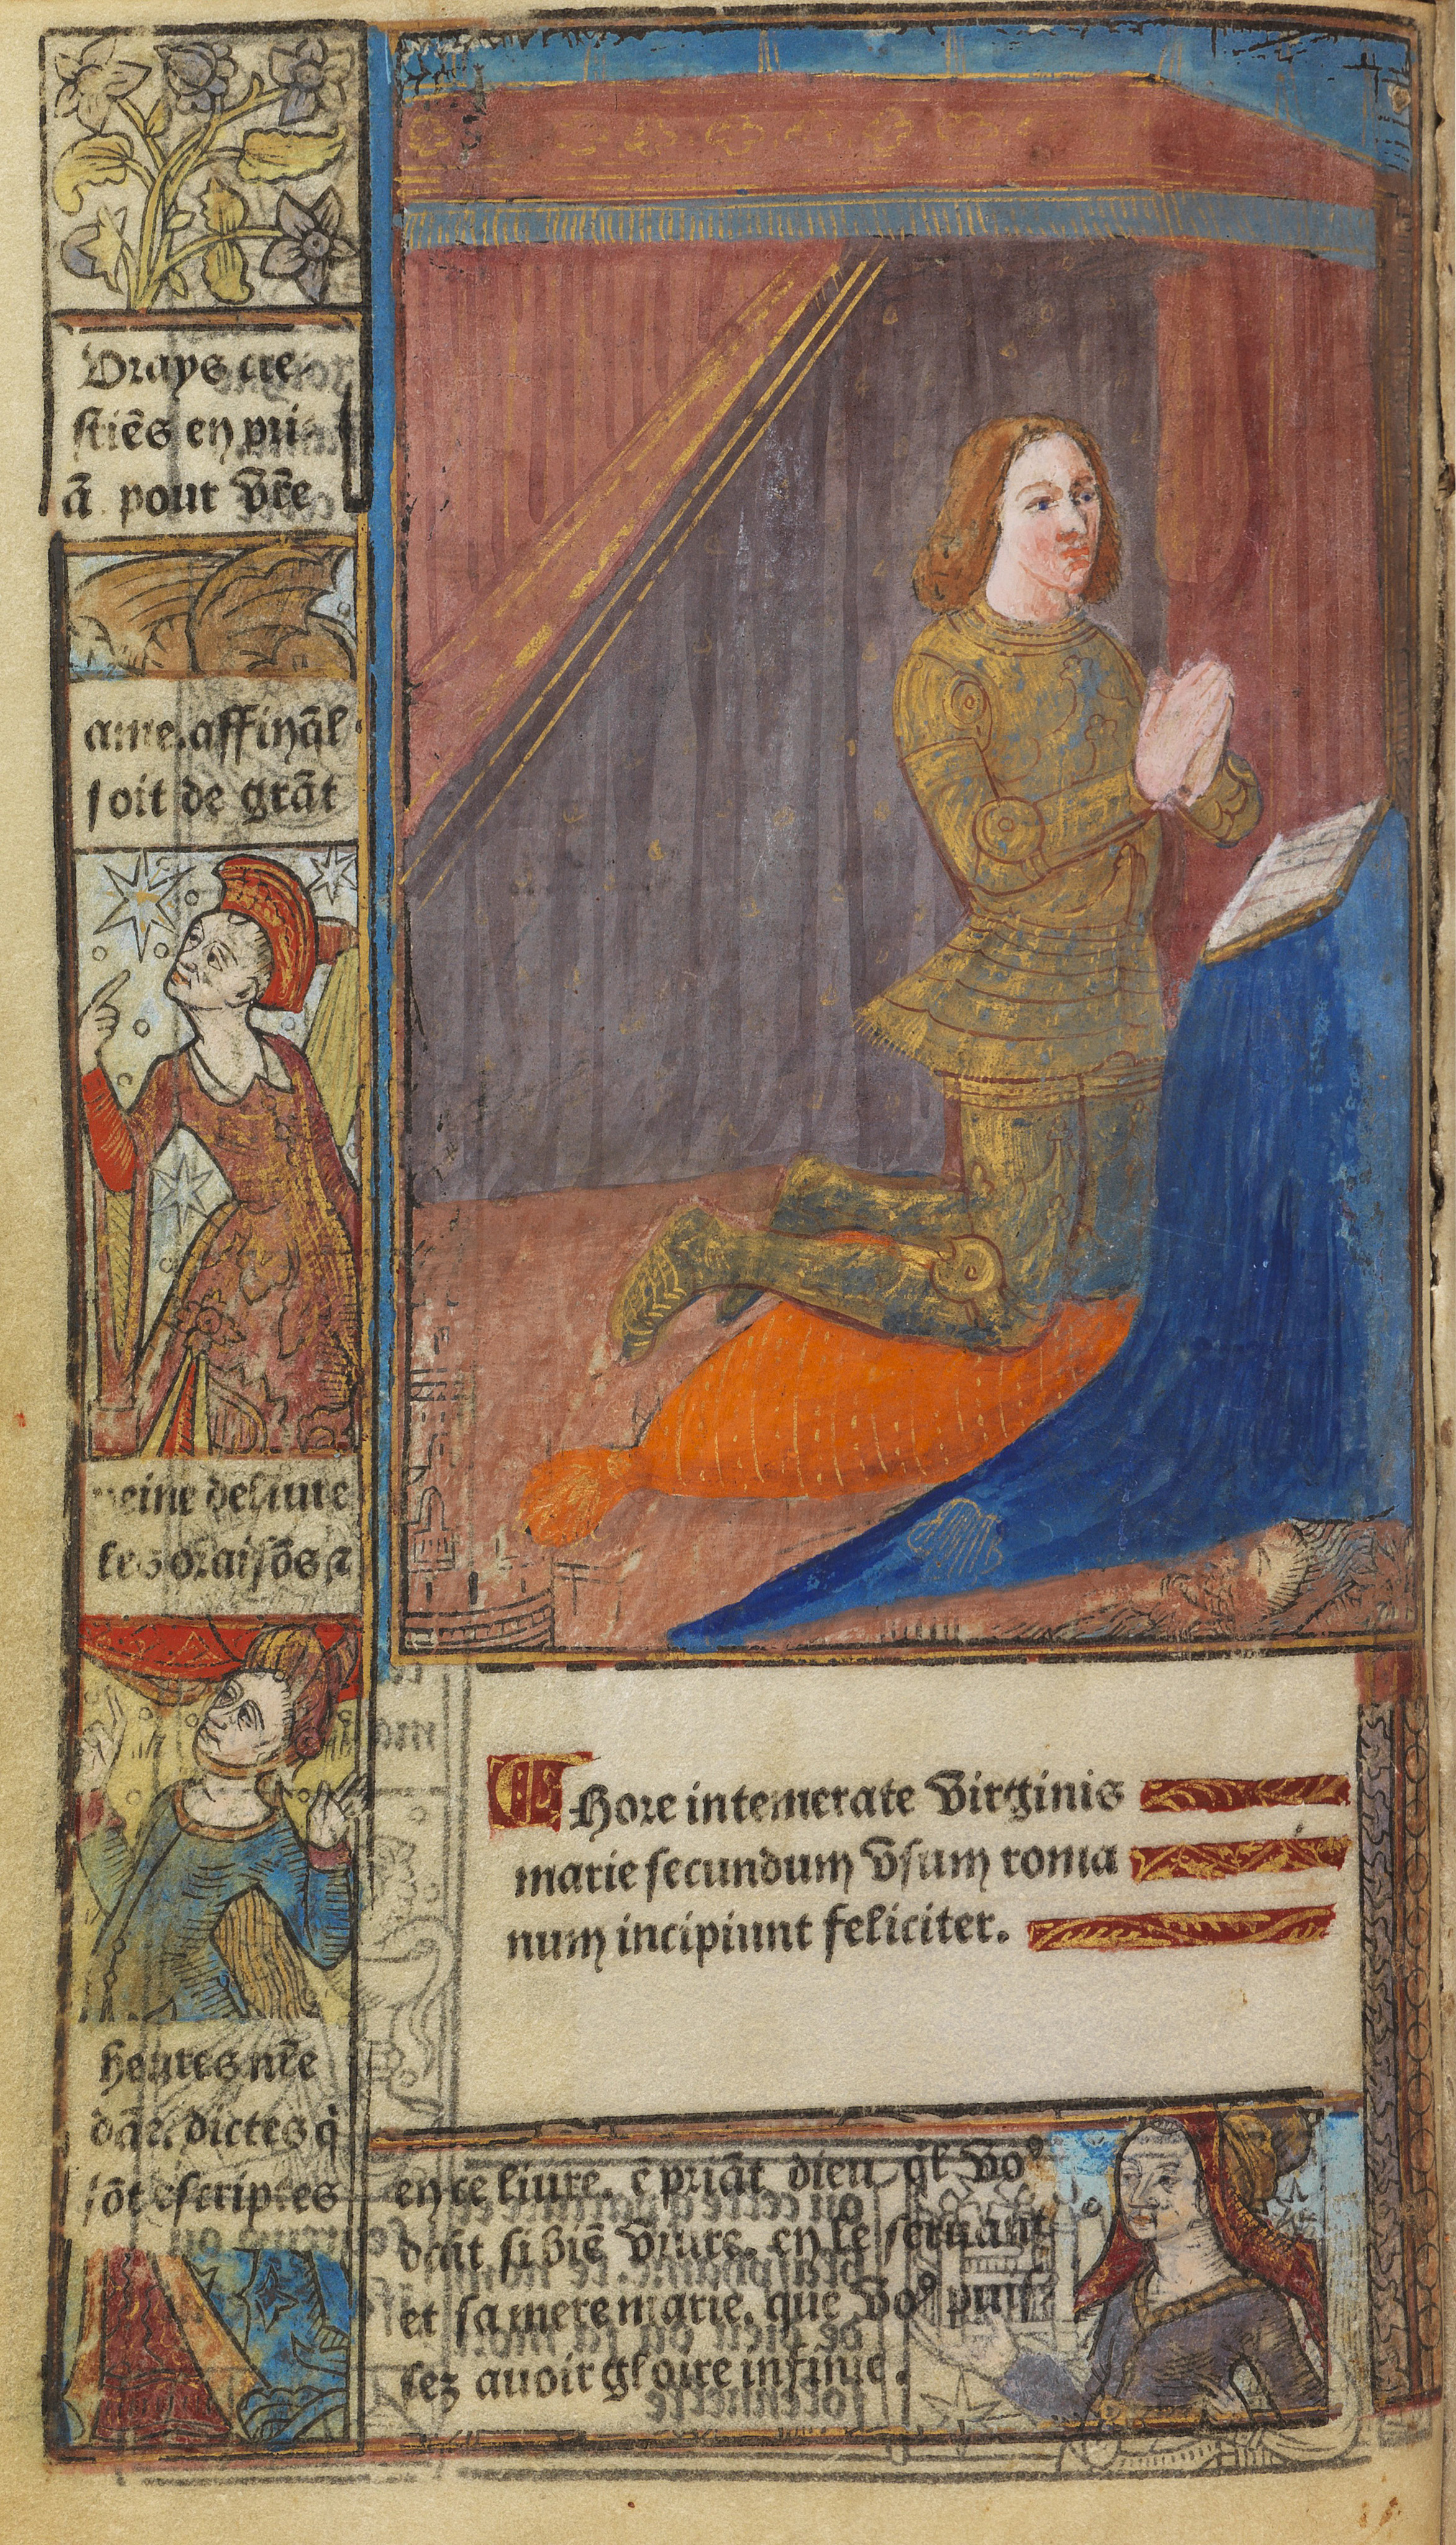 Vrays cre-
stiẽs en pri-
ã pour vr̃e
ame. affinq̃l
soit de grãt
peine deliure
les oraisõs ⁊
heures nr̃e
dãe. dictes q̇
sõt escriptes
en ce liure. ẽ priãt dieu ql voꝰ
doit si biẽ viure. en le seruant
et sa mere marie. que voꝰ puis
sez auoir gloire infinie.
Hore intemerate virginis
marie secundum vsum roma
num incipiunt feliciter.